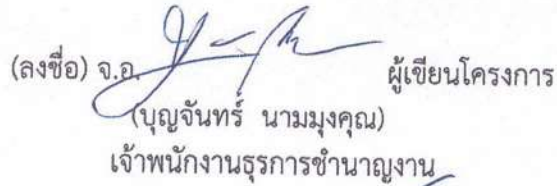 (ลงชื่อ) จ.อ. ผู้เขียนโครงการ
(บุญจันทร์ นามมุงคุณ)
เจ้าพนักงานธุรการชำนาญงาน